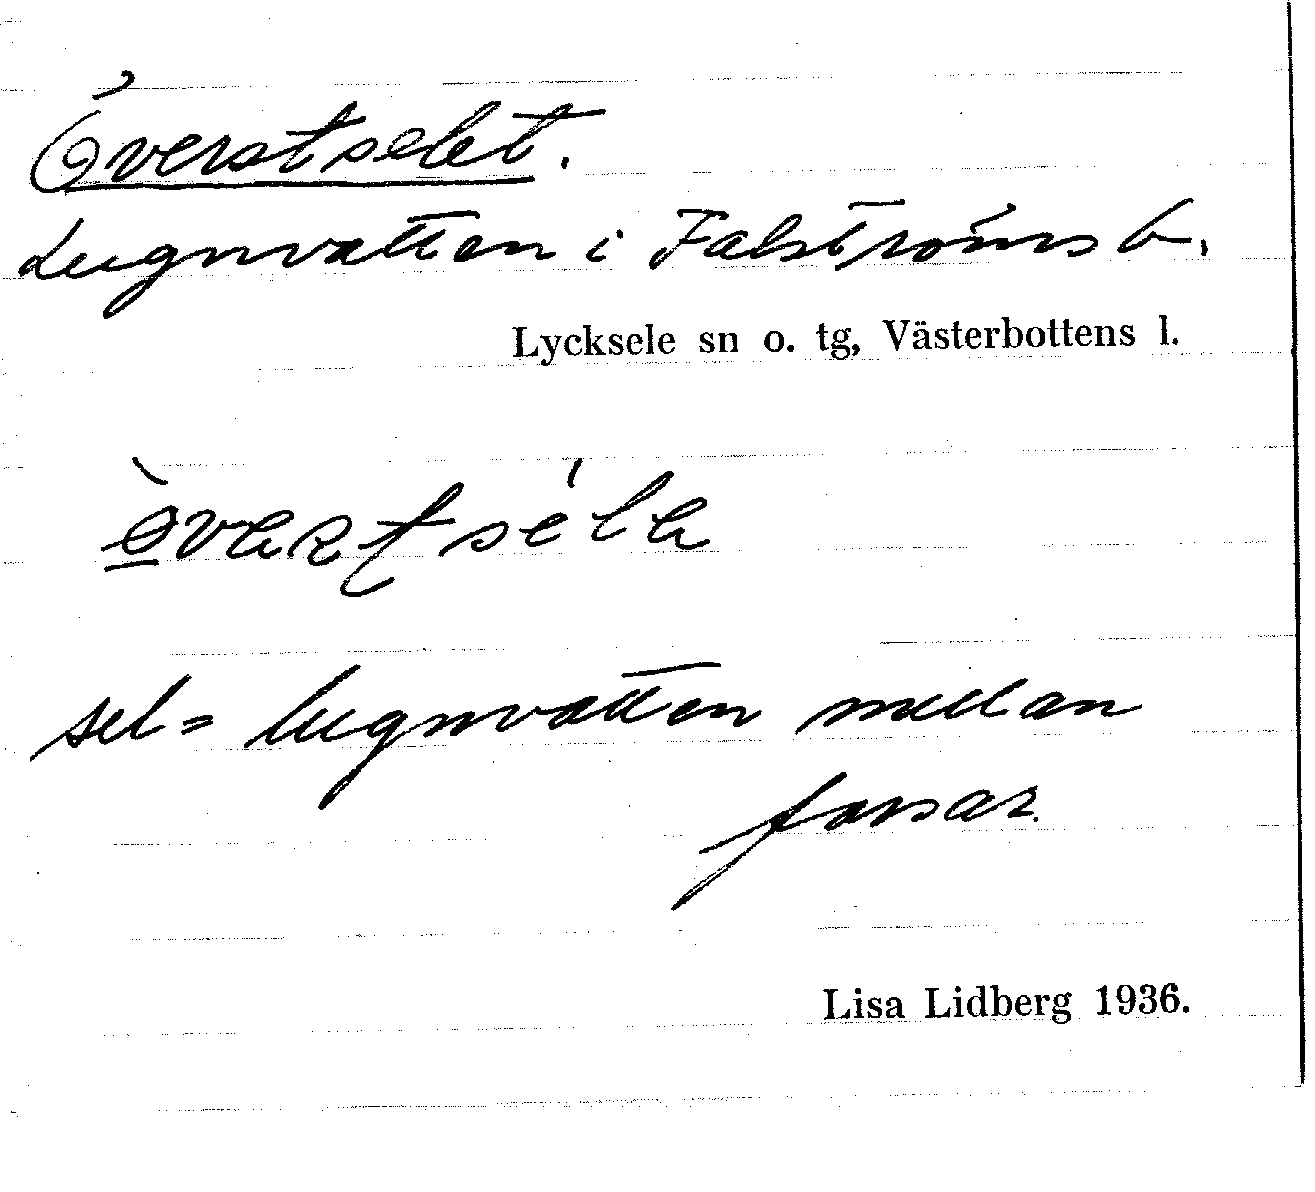 Överstselet.
Lugnvatten i Falströmsb.
Lycksele sn o. tg, Västerbottens l.
sel = lugnvatten mellan
forsar.
Lisa Lidberg 1936.